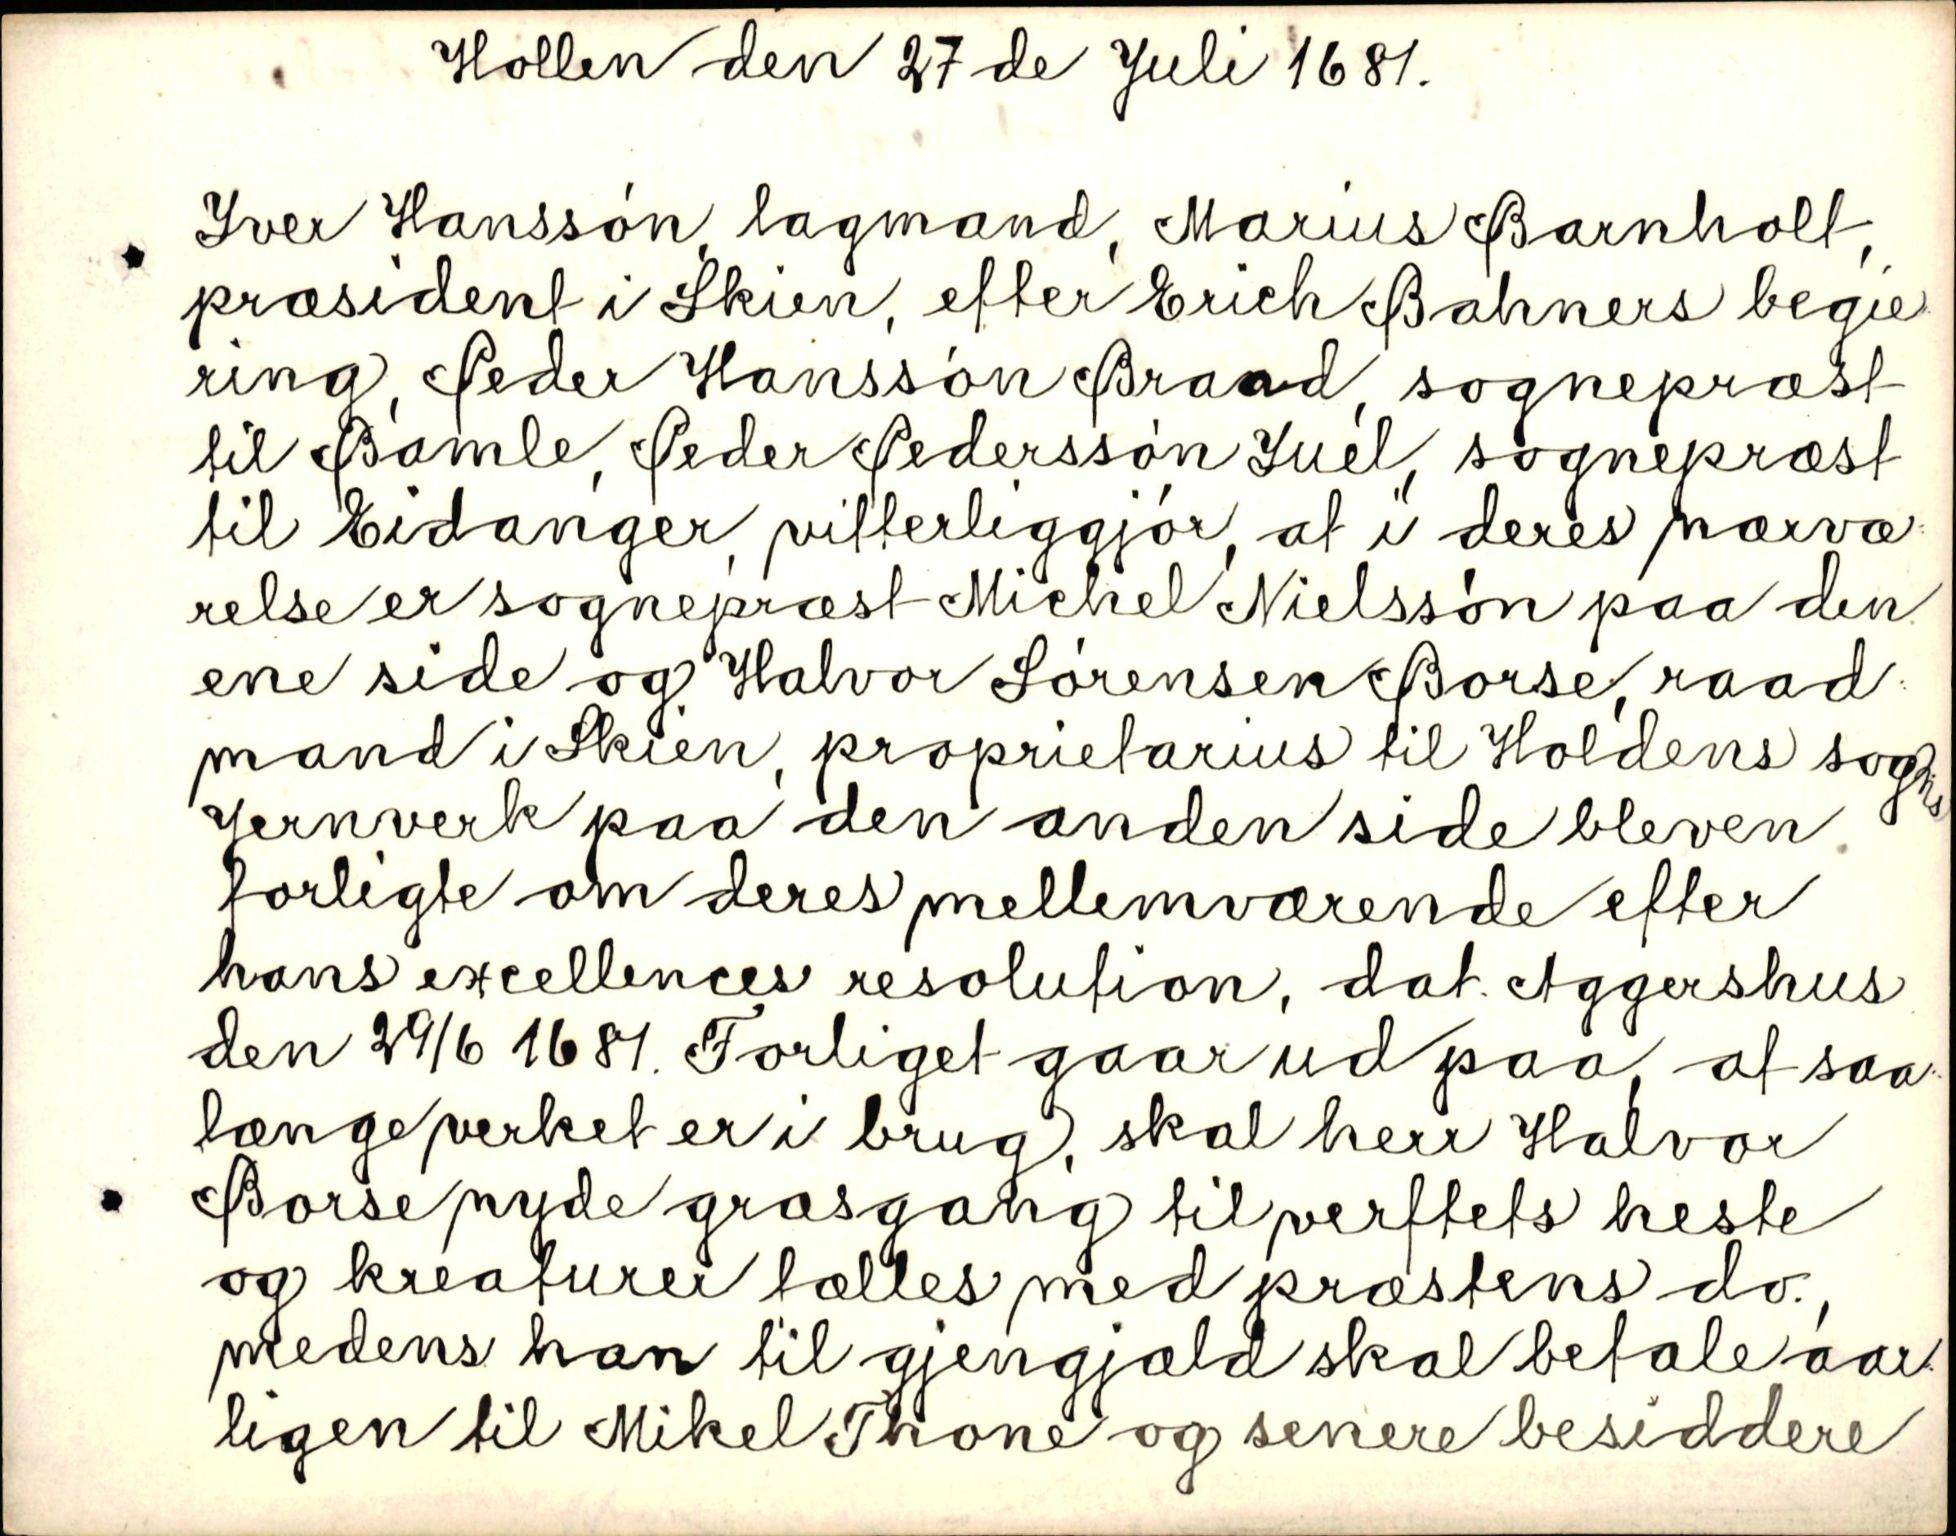 Hollen den 27 de Juli 1681.
Iver Hanssón, lagmand, Marius Barnholt,
præsident i Skien, efter Erich Bahners begie-
ring, Peder Hanssón Braad, sognepræst
til Bamle, Peder Pederssón Juel, sognepræst
til Eidanger, vitterliggjór, at i deres nærvæ-
relse er sognepræst Michel Nielssón paa den
ene side og Halvor Sórensen Borse, raad-
mand i Skien, proprietarius til Holdens sogns
Jernverk paa den anden side bleven
forligte om deres mellemværende efter
hans excellences resolution, dat. Aggershus
den 29/6 1681. Forliget gaar ud paa, at saa-
længe verket er i brug, skal herr Halvor
Borse nyde græsgang til verftets heste
og kreaturer fælles med præstens do.,
medens han til gjengjæld skal betale aar-
ligen til Mikel Thone og senere besiddere